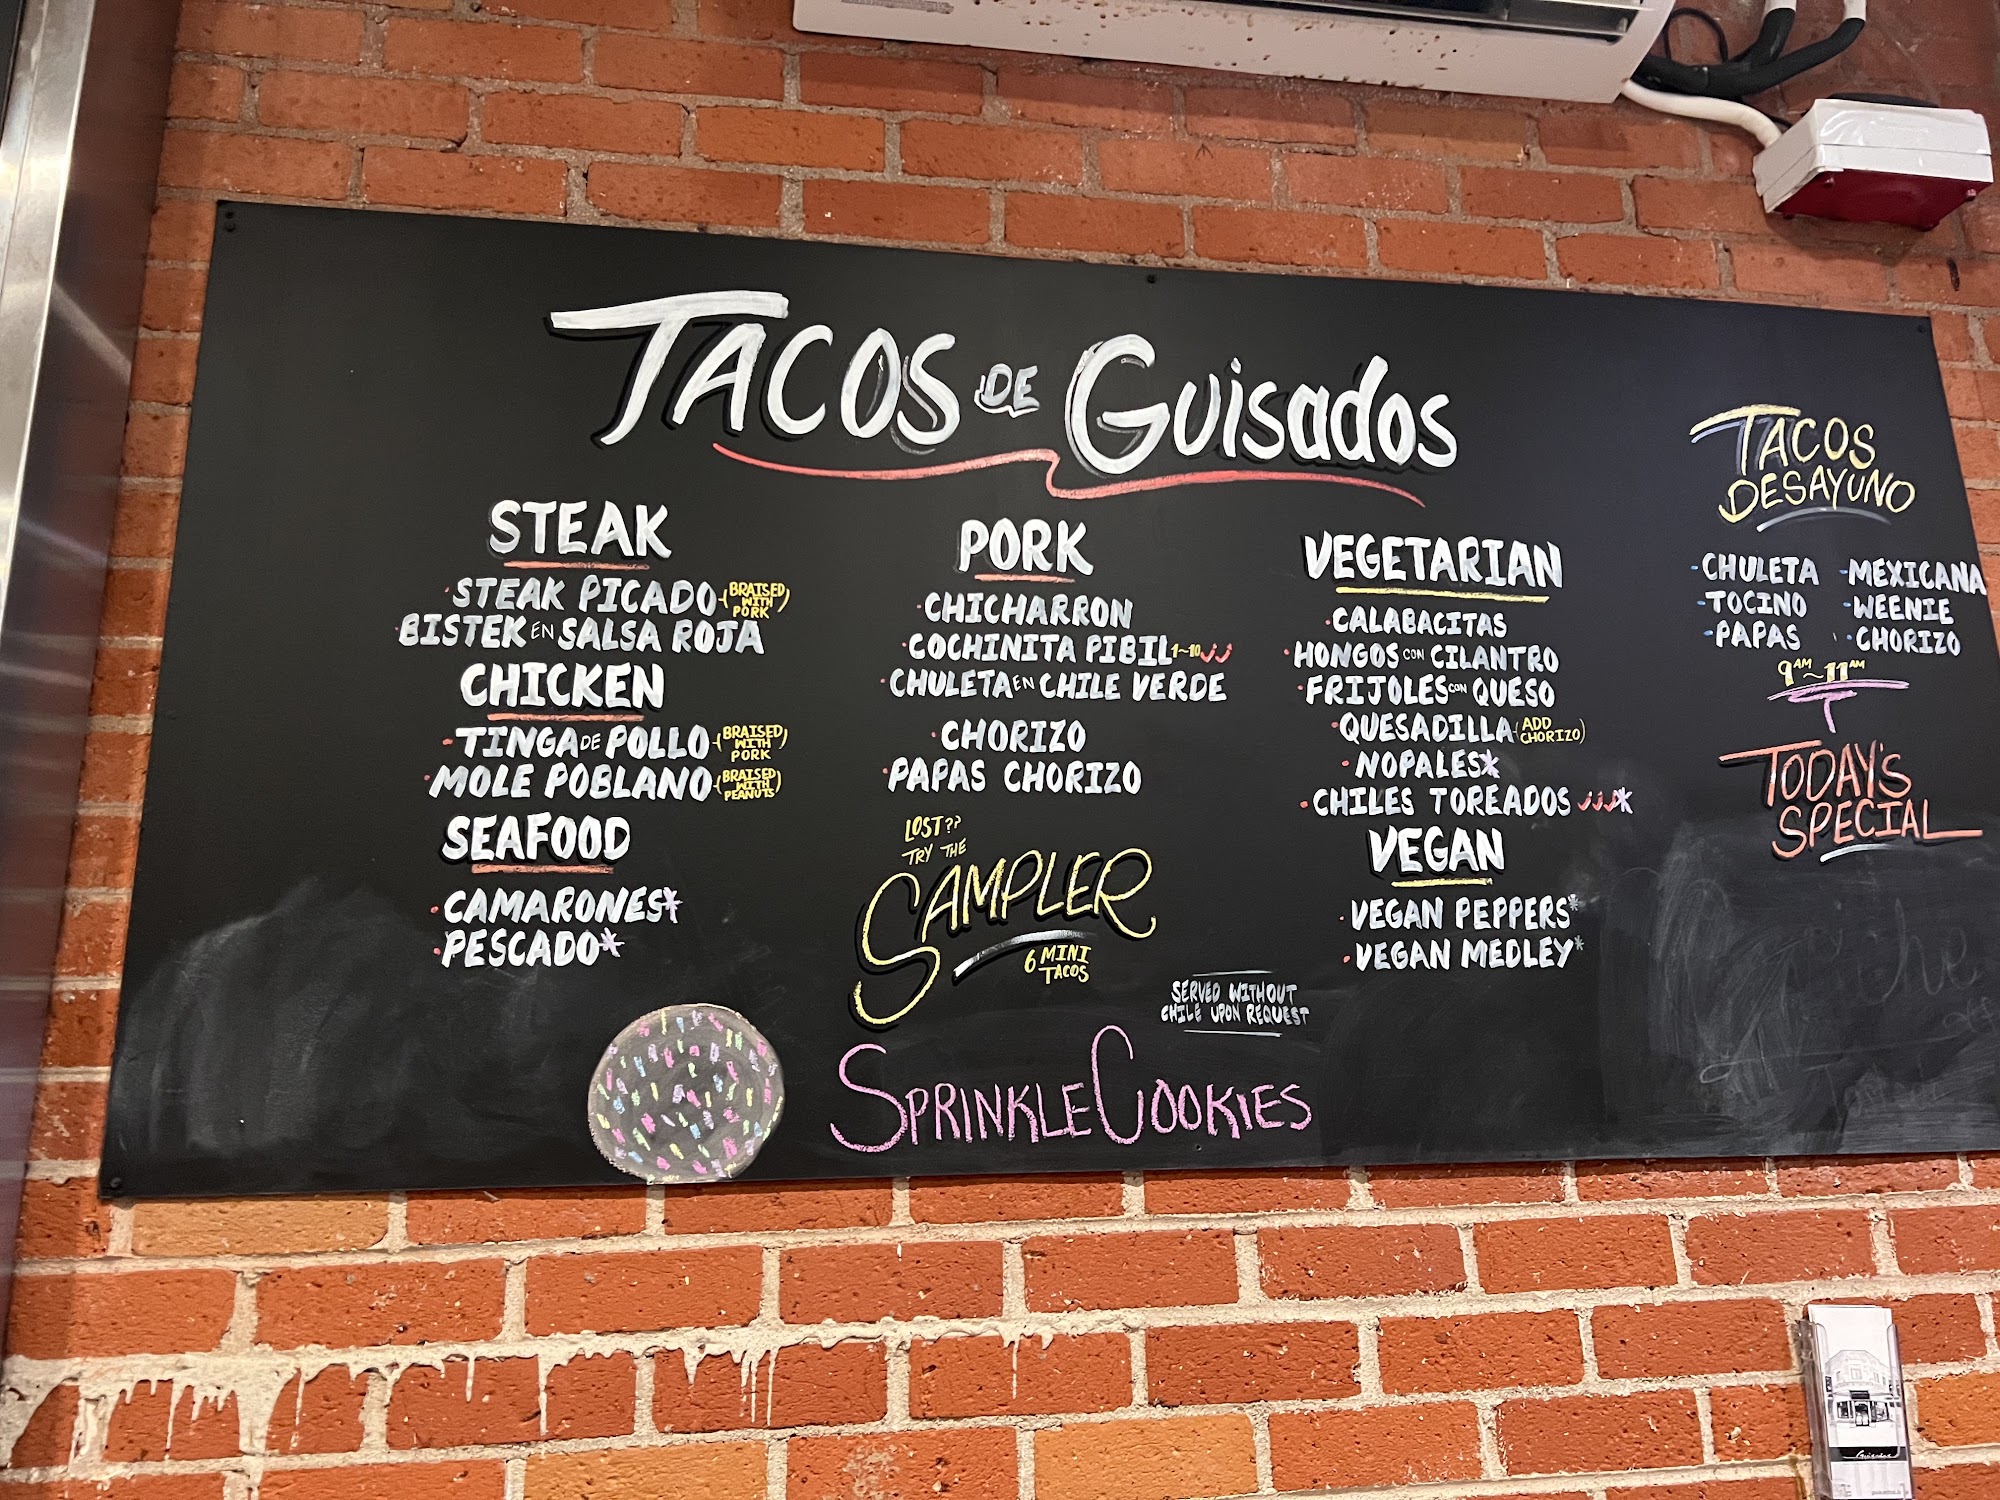 TACOS DE GUISADOS
STEAK
· STEAK PICADO (BRAISED WITH PORK)
· BISTEK EN SALSA ROJA
CHICKEN
· TINGA DE POLLO (BRAISED WITH PORK)
· MOLE POBLANO (BRAISED WITH PEANUTS)
SEAFOOD
· CAMARONES*
· PESCADO*
PORK
· CHICHARRON
· COCHINITA PIBIL 1~10
· CHULETA EN CHILE VERDE
· CHORIZO
· PAPAS CHORIZO
LOST??
TRY THE
SAMPLER
6 MINI
TACOS
VEGETARIAN
· CALABACITAS
· HONGOS CON CILANTRO
· FRIJOLES CON QUESO
· QUESADILLA (ADD CHORIZO)
· NOPALES*
· CHILES TOREADOS *
VEGAN
· VEGAN PEPPERS*
· VEGAN MEDLEY*
SERVED WITHOUT
CHILE UPON REQUEST
SPRINKLE COOKIES
TACOS
DESAYUNO
- CHULETA - MEXICANA
- TOCINO - WEENIE
- PAPAS - CHORIZO
9AM~11AM
TODAY'S
SPECIAL
Guisados